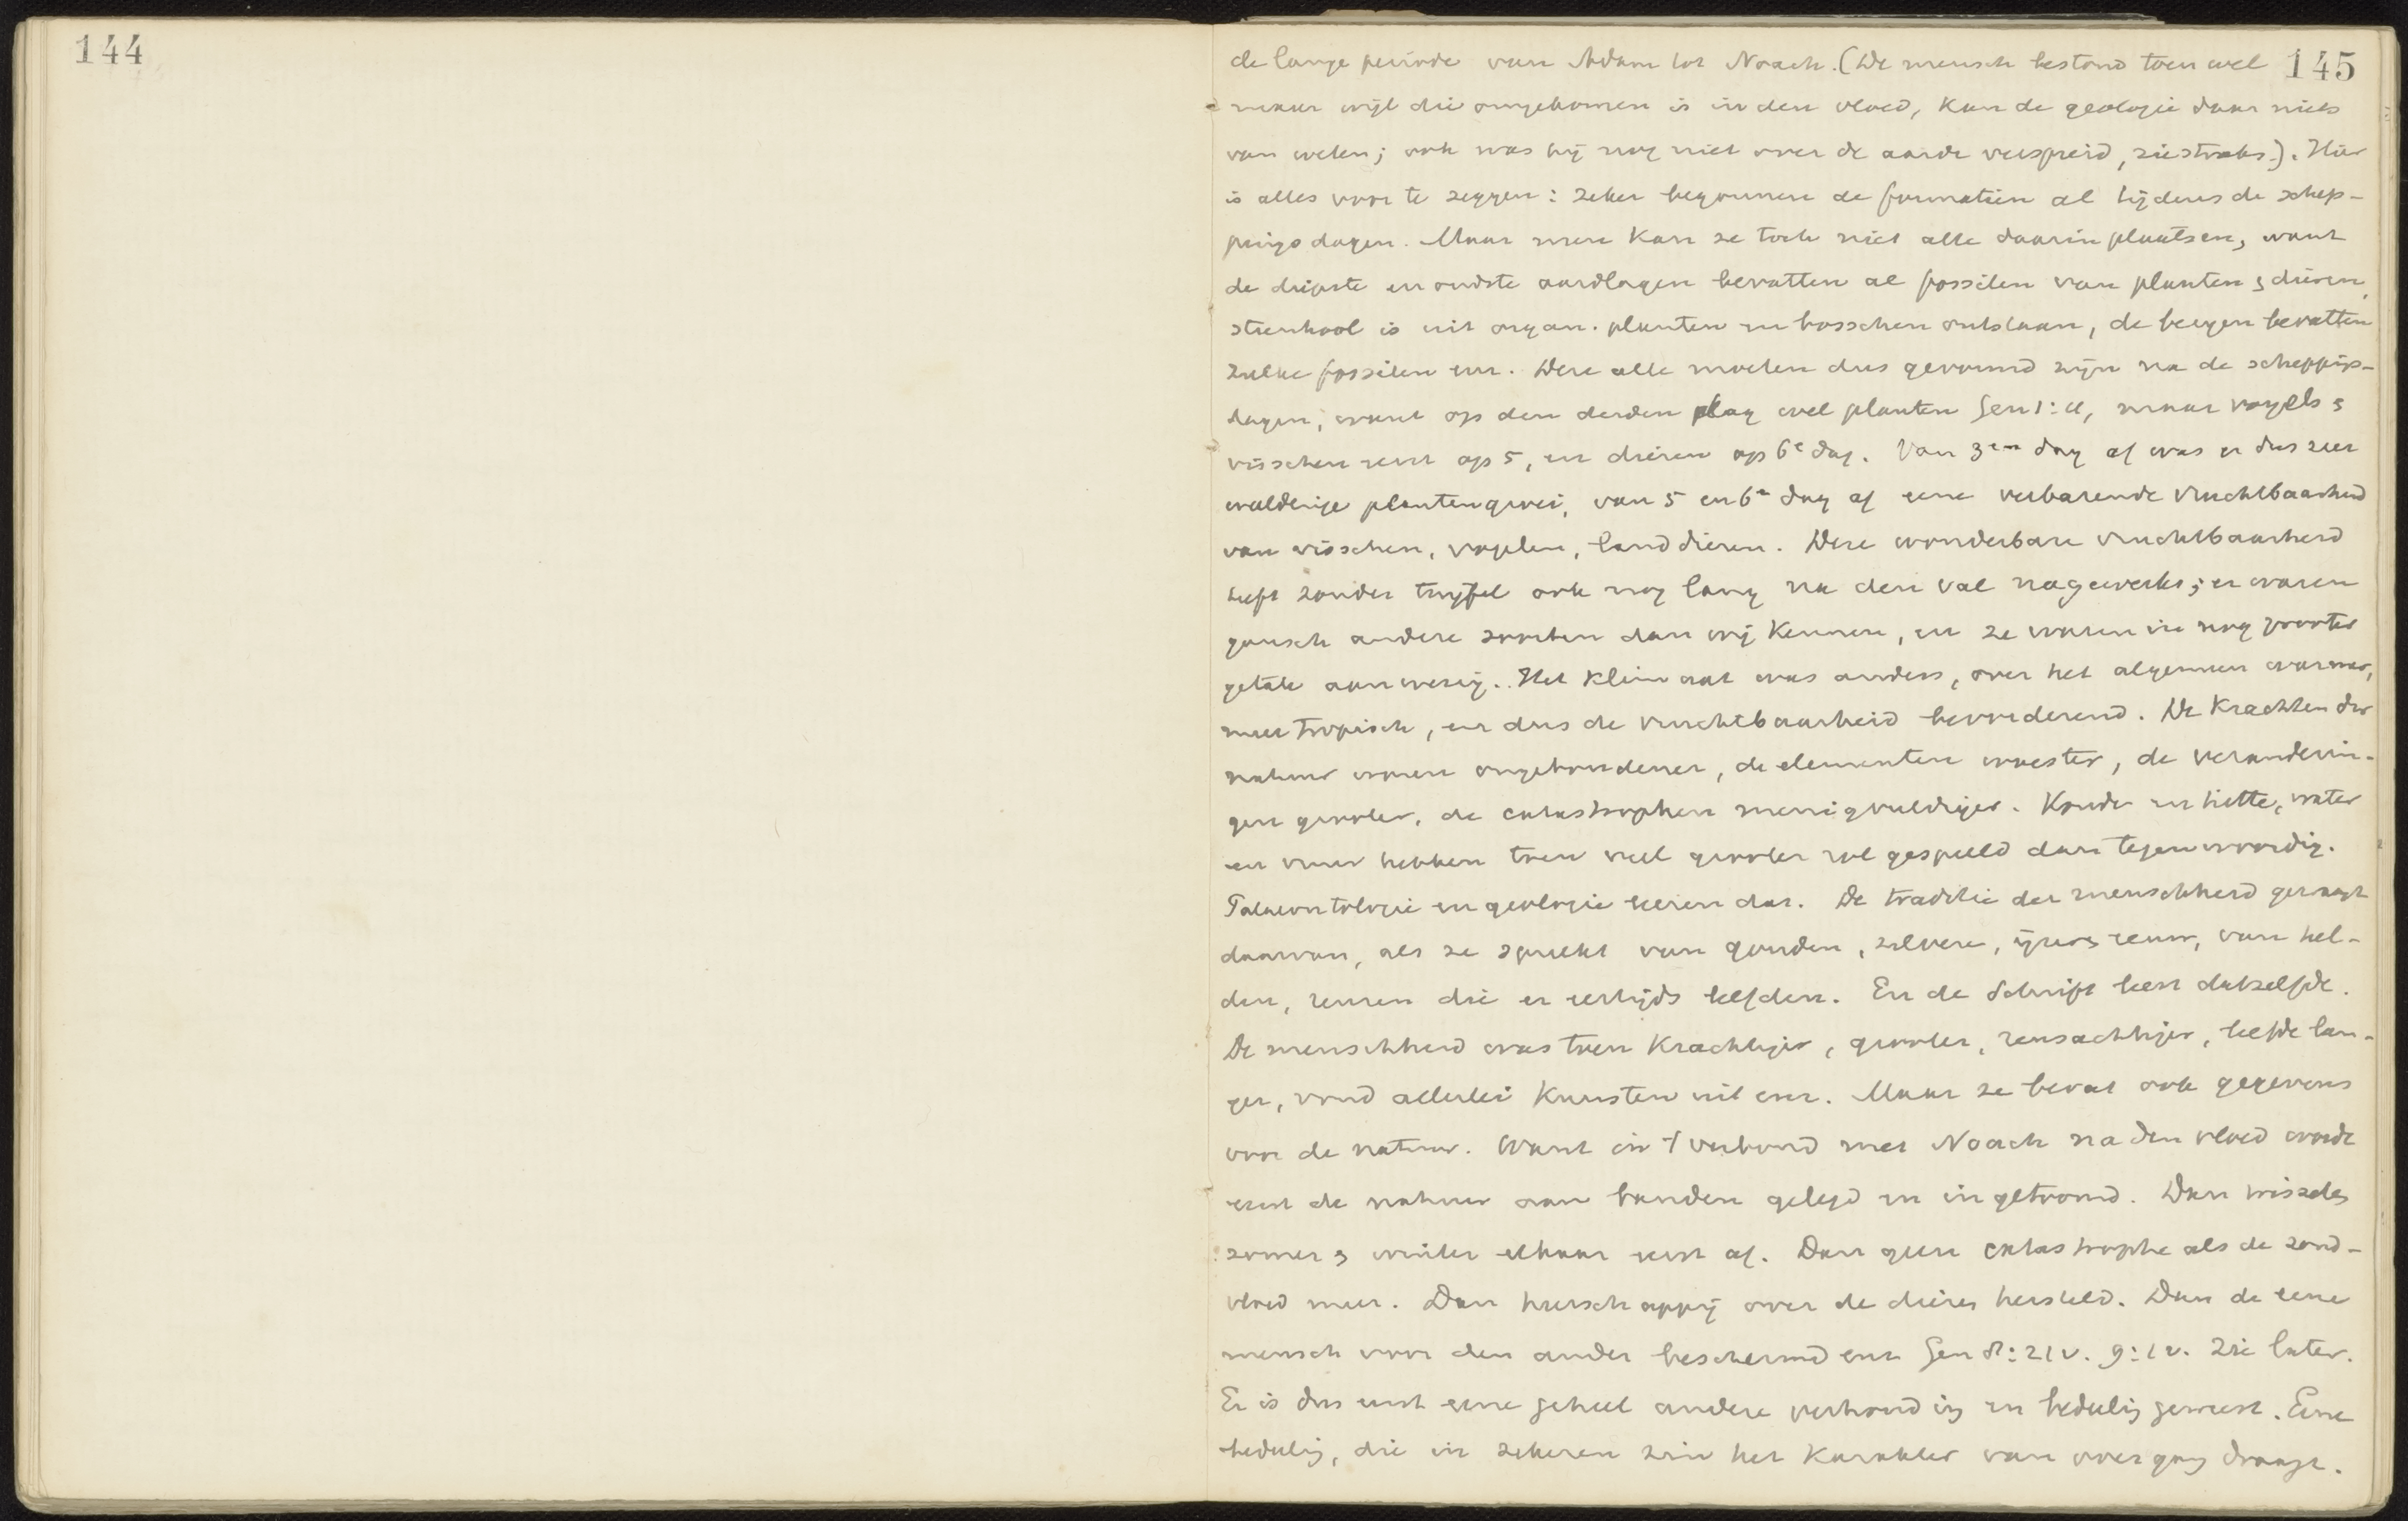 144
145
de lange periode van Adam tot Noach. (De mensch bestond toen wel
maar wijl die omgekomen is in den vloed, kan de geologie daar niets
van weten; ook was hij nog niet over de aarde verspreid, zie straks). Hier
is alles voor te zeggen: zeker begonnen de formatien al tijdens de schep-
pingsdagen. Maar men kan ze toch niet alle daarin plaatsen, want
de diepste en oudste aardlagen bevatten al fossilen van planten & dieren,
steenkool is uit organ. planten en bosschen ontstaan, de bergen bevatten
zulke fossilen enz. Deze alle moeten dus gevormd zijn na de scheppings-
dagen, want op den derden dag wel planten Gen 1:11, maar vogels &
visschen eerst op 5, en dieren op 6e dag. Van 3en dag af was er dus zeer
weelderige plantengroei, van 5 en 6e dag af eene verbazende vruchtbaarheid
van visschen, vogelen, landdieren. Deze wonderbare vruchtbaarheid
heeft zonder twijfel ook nog lang na den val nagewerkt; er waren
gansch andere soorten dan wij kennen, en ze waren in nog grooter
getale aanwezig. Het klimaat was anders, over het algemeen warmer,
meer tropisch, en dus de vruchtbaarheid bevorderend. De krachten der
natuur waren ongebondener, de elementen woester, de veranderin-
gen grooter, de catastrophen menigvuldiger. Koude en hitte, water
en vuur hebben toen veel grooter rol gespeeld dan tegenwoordig.
Palaeontologie en geologie leeren dat. De traditie der menschheid gewaagt
daarvan, als ze spreekt van gouden, zilvere, ijzers eeuw, van hel-
den, reuzen die er eertijds leefden. En de Schrift leert datzelfde.
De menschheid was toen krachtiger, grooter, reusachtiger, leefde lan-
ger, vond allerlei kunsten uit enz. Maar ze bevat ook gegevens
voor de natuur. Want in 't verbond met Noach na den vloed wordt
eerst de natuur aan banden gelegd en ingetoomd. Dan wisselen
zomer & winter elkaar eerst af. Dan geen catastrophe als de zond-
vloed meer. Dan heerschappij over de dieren hersteld. Dan de eene
mensch voor den ander beschermd enz Gen 8:21v. 9:1v. Zie later.
Er is dus eerst eene geheel andere verhouding en bedeeling geweest. Eene
bedeeling, die in zekeren zin het karakter van overgang draagt.